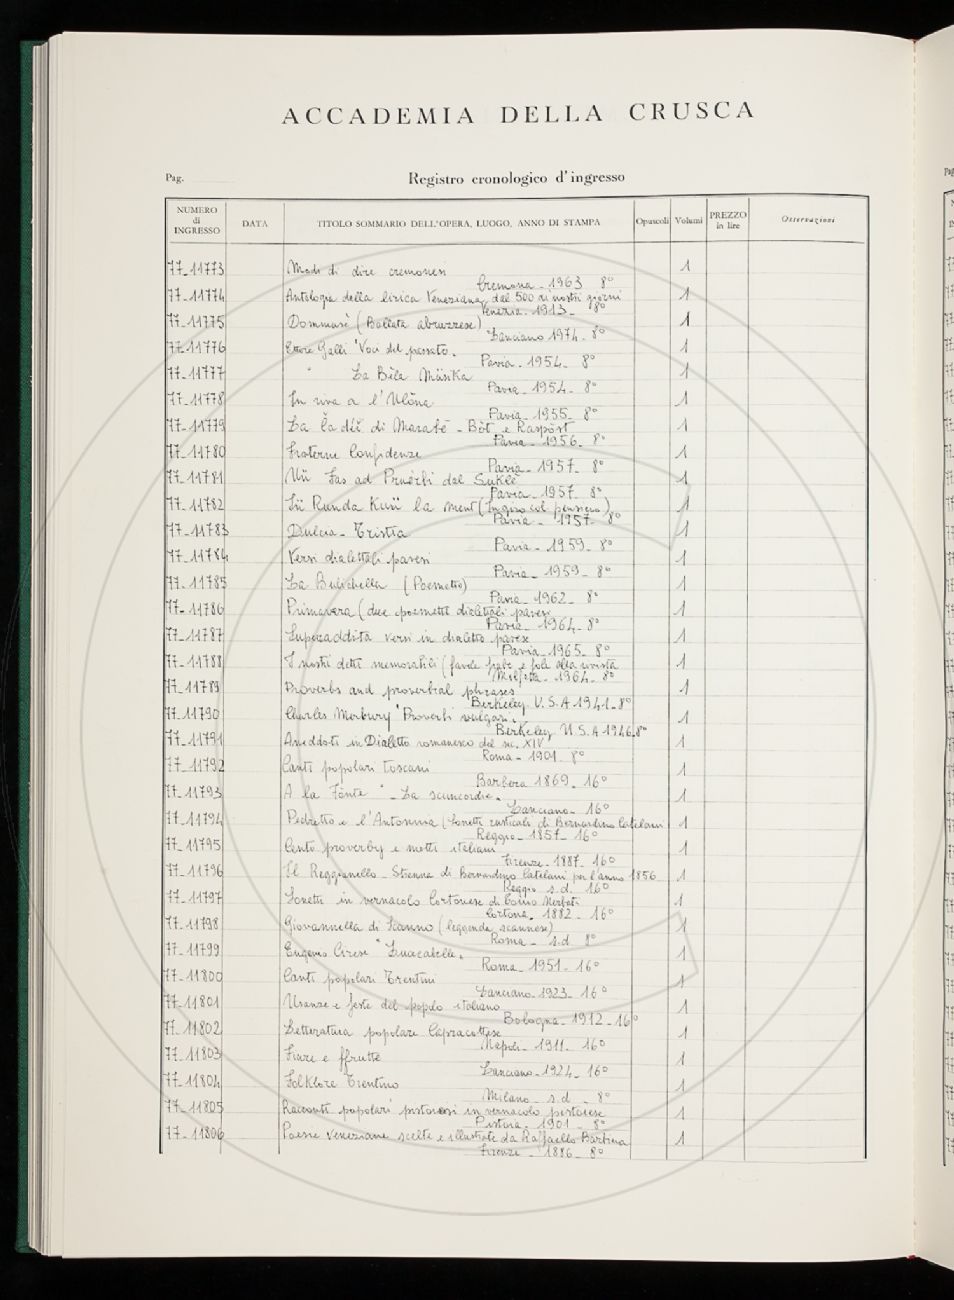 ACCADEMIA DELLA CRUSCA
Pag.
Registro cronologico d'ingresso
NUMERO di INGRESSO DATA TITOLO SOMMARIO DELL'OPERA, LUOGO, ANNO DI STAMPA Opuscoli Volumi PREZZO in lire Osservazioni
77-11773 Modi di dire cremonesi 1
Cremona - 1963 8°
77-11774 Antologia della lirica Veneziana, dal 500 ai nostri giorni 1
Venezia - 1913 - 8°
77-11775 Dommarè (Ballata abruzzese) 1
Lanciano 1974 - 8°
77-11776 Ettore Galli "Voci del passato" 1
Pavia - 1954 - 8°
77-11777 " La Bèla Müsika 1
Pavia - 1954 - 8°
77-11778 In riva a l'Ulòna 1
Pavia - 1955 - 8°
77-11779 La di Marabè - Bòt e Raspòst 1
Pavia - 1956 - 8°
77-11780 Fraterne Confidenze 1
Pavia - 1957 - 8°
77-11781 Ün Fas ad Pruèrbi dal 1
Pavia - 1957 - 8°
77-11782 In Runda Kun la ment (In giro col pensiero) 1
Pavia - 1957 - 8°
77-11783 Dulcia - Tristia 1
Pavia - 1959 - 8°
77-11784 Versi dialettali pavesi 1
Pavia - 1959 - 8°
77-11785 La Bulichella (Poemetto) 1
Pavia - 1962 - 8°
77-11786 Primavera (due poemetti dialettali pavesi 1
Pavia - 1964 - 8°
77-11787 Superaddita versi in dialetto pavese 1
Pavia - 1965 - 8°
77-11788 I nostri detti memorabili (favole 1
Molfetta - 1964 - 8°
77-11789 Proverbs and proverbial phrases 1
Berkeley U.S.A 1941 - 8°
77-11790 Charles Merbury "Proverbi vulgari" 1
Berkeley U.S.A 1946 - 8°
77-11791 Aneddoti in Dialetto romanesco del sec. XIV 1
Roma - 1901 - 8°
77-11792 Canti popolari Toscani 1
Barbera 1869 - 16°
77-11793 A la Fònte " - La scuncordie 1
Lanciano - 16°
77-11794 Pedretto e l'Antonina (Sonetti rusticali di Bernardino Catelani 1
Reggio - 1857 - 16°
77-11795 Cento proverbj e motti italiani 1
Firenze - 1887 - 16°
77-11796 Il Reggianello - Strenna di Bernardino Catelani per l'anno 1856 1
Reggio s.d. 16°
77-11797 Sonetti in vernacolo Cortonese di 1
Cortona, 1882 - 16°
77-11798 Giovannella di Scanno (leggenda scannese) 1
Roma - s.d 8°
77-11799 Eugenio Cirese "Lucecabelle" 1
Roma - 1951 - 16°
77-11800 Canti popolari Trentini 1
Lanciano - 1923 - 16°
77-11801 Usanze e feste del popolo italiano 1
Bologna - 1912 - 16°
77-11802 Letteratura popolare Capracottese 1
Napoli - 1911 - 16°
77-11803 Fiure e ffrutte 1
Lanciano - 1924 - 16°
77-11804 Folklore Trentino 1
Milano - s.d - 8°
77-11805 Racconti popolari pistoiesi in vernacolo pistoiese 1
Pistoia - 1901 - 8°
77-11806 Poesie veneziane scelte e illustrate da Raffaello Barbiera 1
Firenze - 1886 - 8°